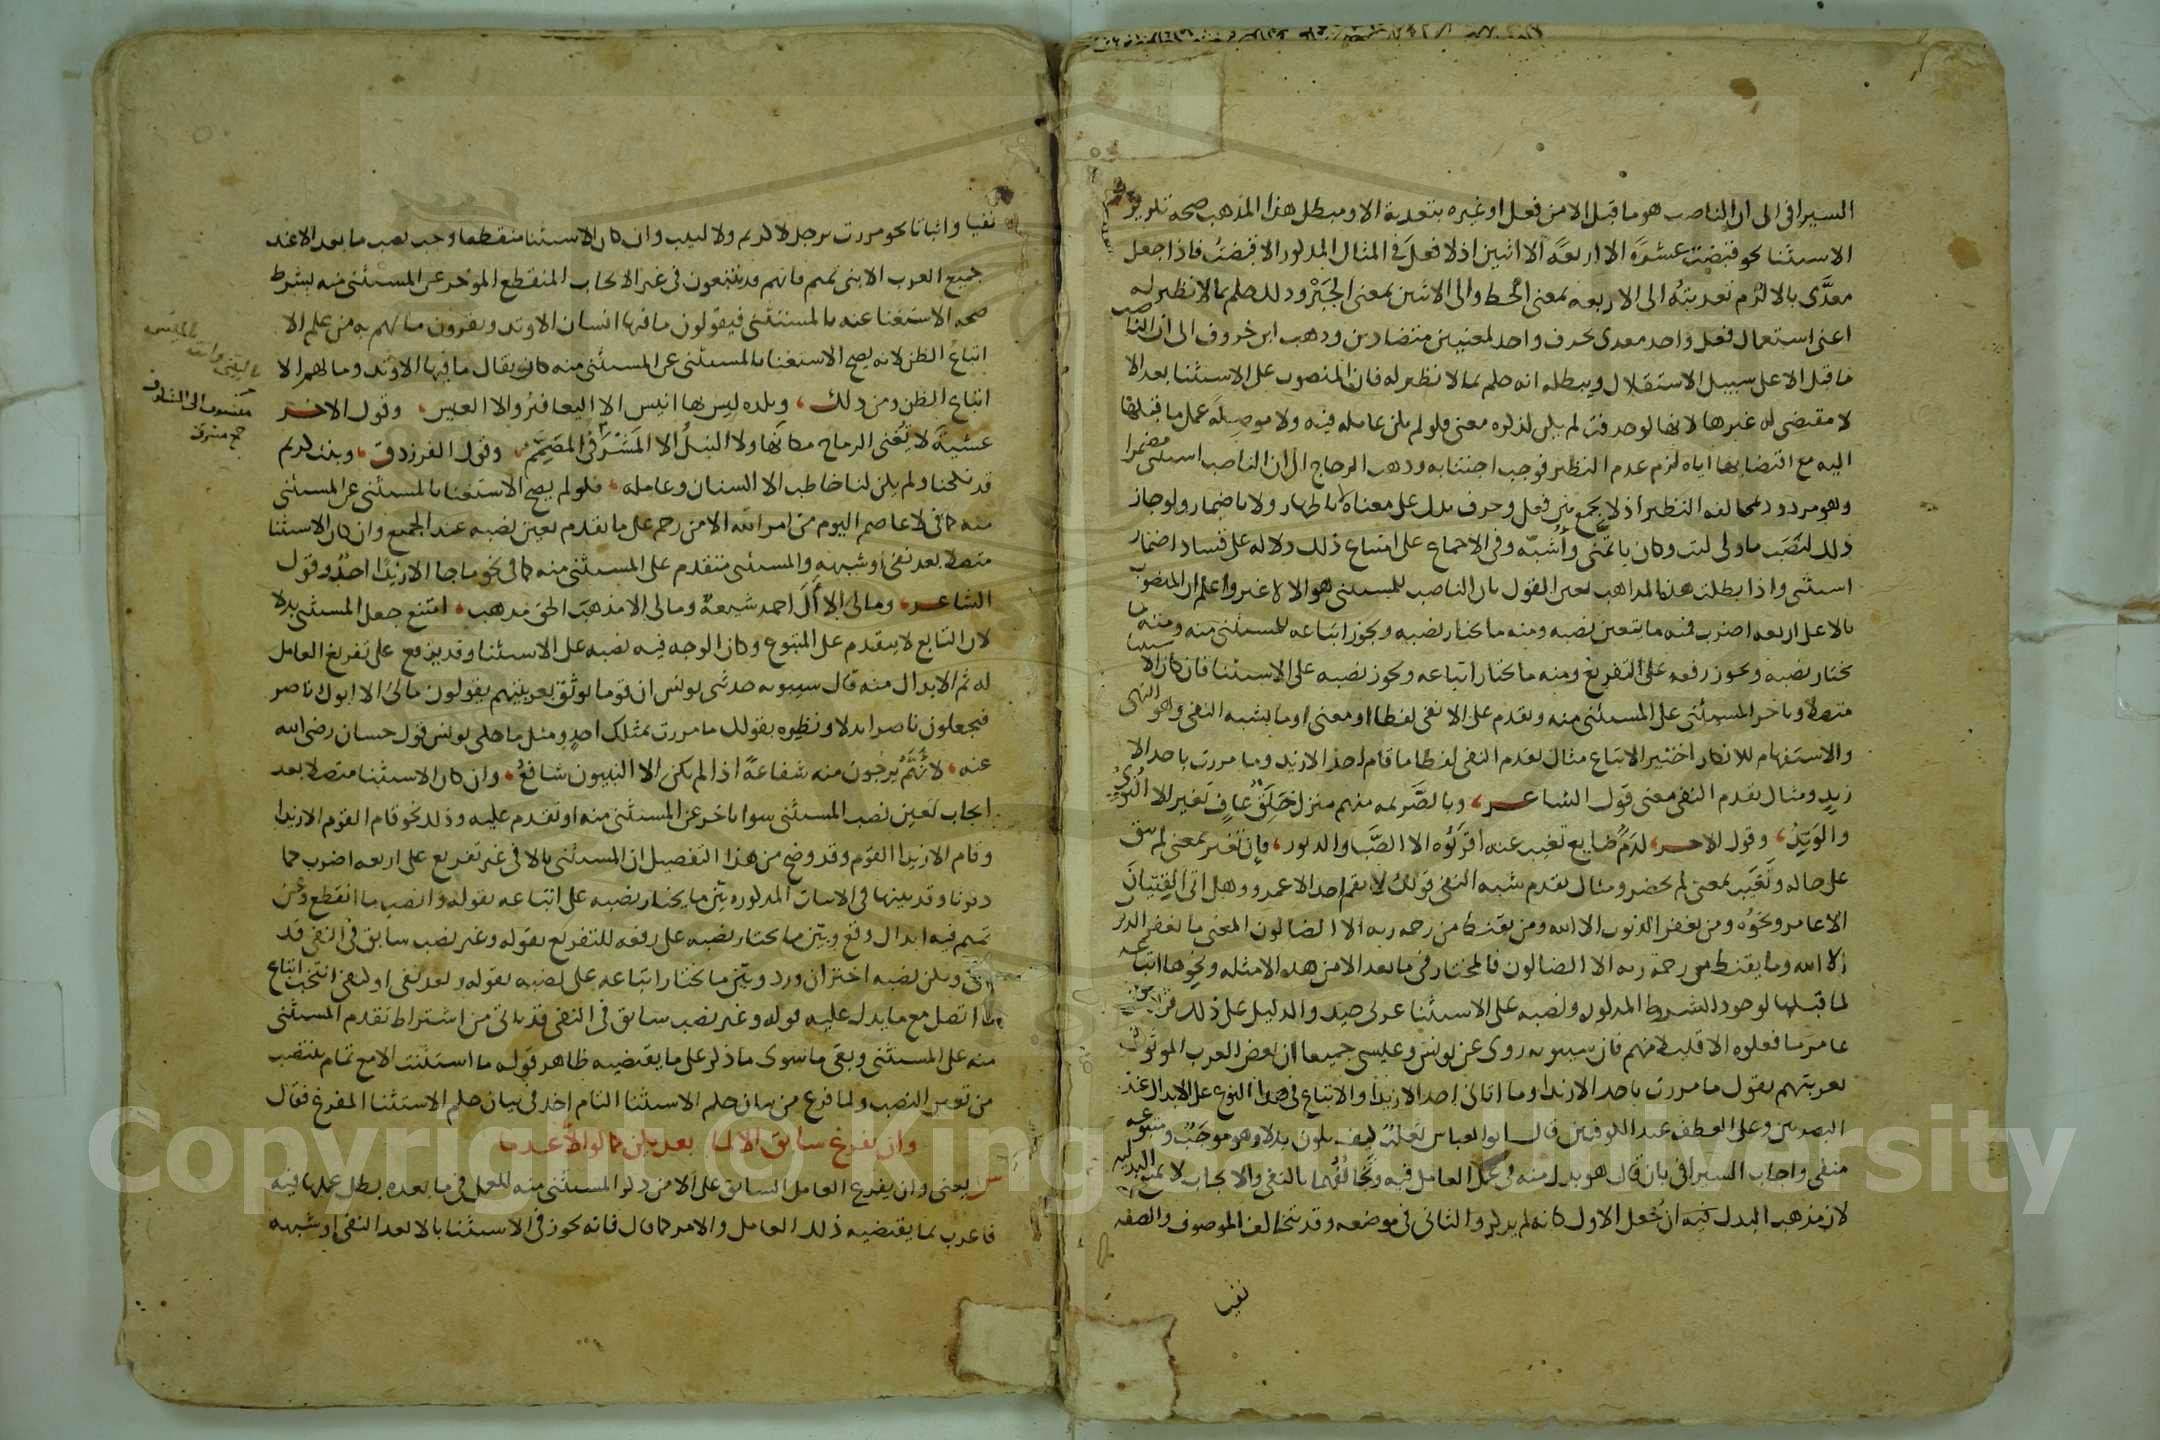 السيرافى الى ان الناصب هو ما قبل الا من فعل او غيره بتعدية الا ومبطل هذا المذهب صحه تكرير
الاستثنا نحو قبضت عشرة الا اربعة الا اثنين اذ لا فعل فى المثال المذكور الا قبضت فاذا جعل
معدى بالا لزم تعديته الى الاربعه بمعنى الحط والى الاثنين بمعنى الجبر وذلك حكم بما لا نظير له
اعنى استعمال فعل واحد معدى بحرف واحد لمعنيين متضادين وذهب ابن خروف الى ان الناصب
ما قبل الا على سبيل الاستقلال ويبطله انه حكم بما لا نظير له فان المنصوب على الاستثنا بعد الا
لا مقتضى له غيرها لانها لو حذفت لم يكن لذكره معنى فلو لم تكن عامله فيه ولا موصلة عمل ما قبلها
اليه مع اقتضايها اياه لزم عدم النظير فوجب اجتنابه وذهب الزجاج الى ان الناصب استثنى مضمرا
وهو مردود بمخالفه النظير اذ لا يجمع بين فعل وحرف يدل على معناه لا باظهار ولا باضمار ولو جاز
ذلك لنصب ما ولى ليت وكان باتمنى واشبه وفى الاجماع على امتناع ذلك دلاله على فساد اضمار
استثنى واذا بطلت هذه المذاهب تعين القول بان الناصب للمستثنى هو الا لا غير واعلم ان المنصوب
بالا على اربعه اضرب فمنه ما يتعين نصبه ومنه ما يختار نصبه ويجوز اتباعه للمستثنى منه ومنه ما
يختار نصبه ويجوز رفعه على التفريغ ومنه ما يختار اتباعه ويجوز نصبه على الاستثنا فان كان الا
متصلا وتاخر المستثنى على المستثنى منه وتقدم على الا نفى لفظا او معنى او ما يشبه النفى وهو النهى
والاستفهام للانكار اختير الاتباع مثال تقدم النفى لفظا ما قام احد الا زيد وما مررت باحد الا
زيد ومثال تقدم النفى معنى قول الشاعر وبالصريمه منهم منزل خلق عاف تغير الا النوى
والوتد وقول الاخر لدم ضايع تغيب عنه اقربوه الا الصبا والدبور فان تغير بمعنى لم يبق
على حاله وتغيب بمعنى لم يحضر ومثال تقدم شبه النفى قولك لا يقم احد الا عمرو وهل اتى الفتيان
الا عامر ونحوه ومن يغفر الذنوب الا الله ومن يقنط من رحمه ربه الا الضالون المعنى ما يغفر الذنوب
الا الله وما يقنط من رحمة ربه الا الضالون فالمختار فى ما بعد الا من هذه الامثله ونحوها اتباعه
لما قبلها لوجود الشرط المذكور ونصبه على الاستثنا عربى جيد والدليل على ذلك قراة ابن
عامر ما فعلوه الا قليلا منهم فان سيبويه روى عن يونس وعيسى جميعا ان بعض العرب الموثوق
بعربيتهم يقول ما مررت باحد الا زيدا وما اتانى احد الا زيدا والاتباع فى هذا النوع على الابدال عند
البصريين وعلى العطف عند الكوفيين قال ابو العباس ثعلب كيف يكون بدلا وهو موجب ومتبوعه
منفى واجاب السيرافى بان قال هو بدل منه فى عمل العامل فيه وتخالفهما بالنفى والايجاب لا يمنع البدليه
لان مذهب البدل فيه ان يجعل الاول كانه لم يذكر والثانى فى موضعه وقد تتخالف الموصوف والصفه
نفيا
نفيا واثباتا نحو مررت برجل لا كريم ولا لبيب وان كان الاستثنا منقطعا وجب نصب ما بعد الا عند
جميع العرب الا بنى تميم فانهم قد يتبعون فى غير الايجاب المنقطع الموخر عن المستثنى منه بشرط
صحه الاستغنا عنه بالمستثنى فيقولون ما فيها انسان الا وتد ويقرون ما لهم به من علم الا
اتباع الظن لانه يصح الاستغنا بالمستثنى عن المستثنى منه كان يقال ما فيها الا وتد وما لهم الا
اتباع الظن ومن ذلك وبلده ليس بها انيس الا اليعافير والا العيس وقول الاخر
عشية لا تغنى الرماح مكانها ولا النبل الا المشرفى المصمم وقول الفرزدق وبنت كريم
قد نكحنا ولم يكن لنا خاطب الا السنان وعامله فلو لم يصح الاستغنا بالمستثنى عن المستثنى
منه كما فى لا عاصم اليوم من امر الله الا من رحم على ما تقدم تعين نصبه عند الجميع وان كان الاستثنا
متصلا بعد نفى او شبهه والمستثنى متقدم على المستثنى منه كما فى نحو ما جا الا زيدا احد وقول
الشاعر وما لى الا آل احمد شيعة وما لى الا مذهب الحق مذهب امتنع جعل المستثنى بدلا
لان التابع لا يتقدم على المتبوع وكان الوجه فيه نصبه على الاستثنا وقد يرفع على تفريغ العامل
له ثم الابدال منه قال سيبويه حدثنى يونس ان قوما يوثق بعربيتهم يقولون ما لى الا ابوك ناصر
فيجعلون ناصرا بدلا ونظيره بقولك ما مررت بمثلك احد ومثل ما حكى يونس قول حسان رضى الله
عنه لانهم يرجون منه شفاعة اذا لم يكن الا النبيون شافع وان كان الاستثنا متصلا بعد
ايجاب تعين نصب المستثنى سوا تاخر عن المستثنى منه او تقدم عليه وذلك نحو قام القوم الا زيدا
وقام الا زيدا القوم وقد وضح من هذا التفصيل ان المستثنى بالا فى غير تفريغ على اربعه اضرب كما
ذكرنا وقد بينها فى الابيات المذكوره بين ما يختار نصبه على اتباعه بقوله وانصب ما انقطع وعن
تميم فيه ابدال وقع وبين ما يختار نصبه على رفعه للتفريغ بقوله وغير نصب سابق فى النفى قد
ياتى ولكن نصبه اختر ان ورد وبين ما يختار اتباعه على نصبه بقوله وبعد نفى او كنفى انتخب اتباع
ما اتصل مع ما يدل عليه قوله وغير نصب سابق فى النفى قد ياتى من اشتراط تقدم المستثنى
منه على المستثنى وبقى ما سوى ما ذكر على ما يقتضيه ظاهر قوله ما استثنت الا مع تمام ينتصب
من تعين النصب ولما فرغ من بيان حكم الاستثنا التام اخذ فى بيان حكم الاستثنا المفرغ فقال
وان يفرغ سابق الا لما بعد يكن كما لو الا عدما
ش يعنى وان يفرغ العامل السابق على الا من ذكر المستثنى منه للعمل فى ما بعده بطل عملها فيه
فاعرب بما يقتضيه ذلك العامل والامر كما قال فانه يجوز فى الاستثنا بالا بعد النفى او شبهه
منسوب الى المشارف
جمع مشرف
Copyright © King University